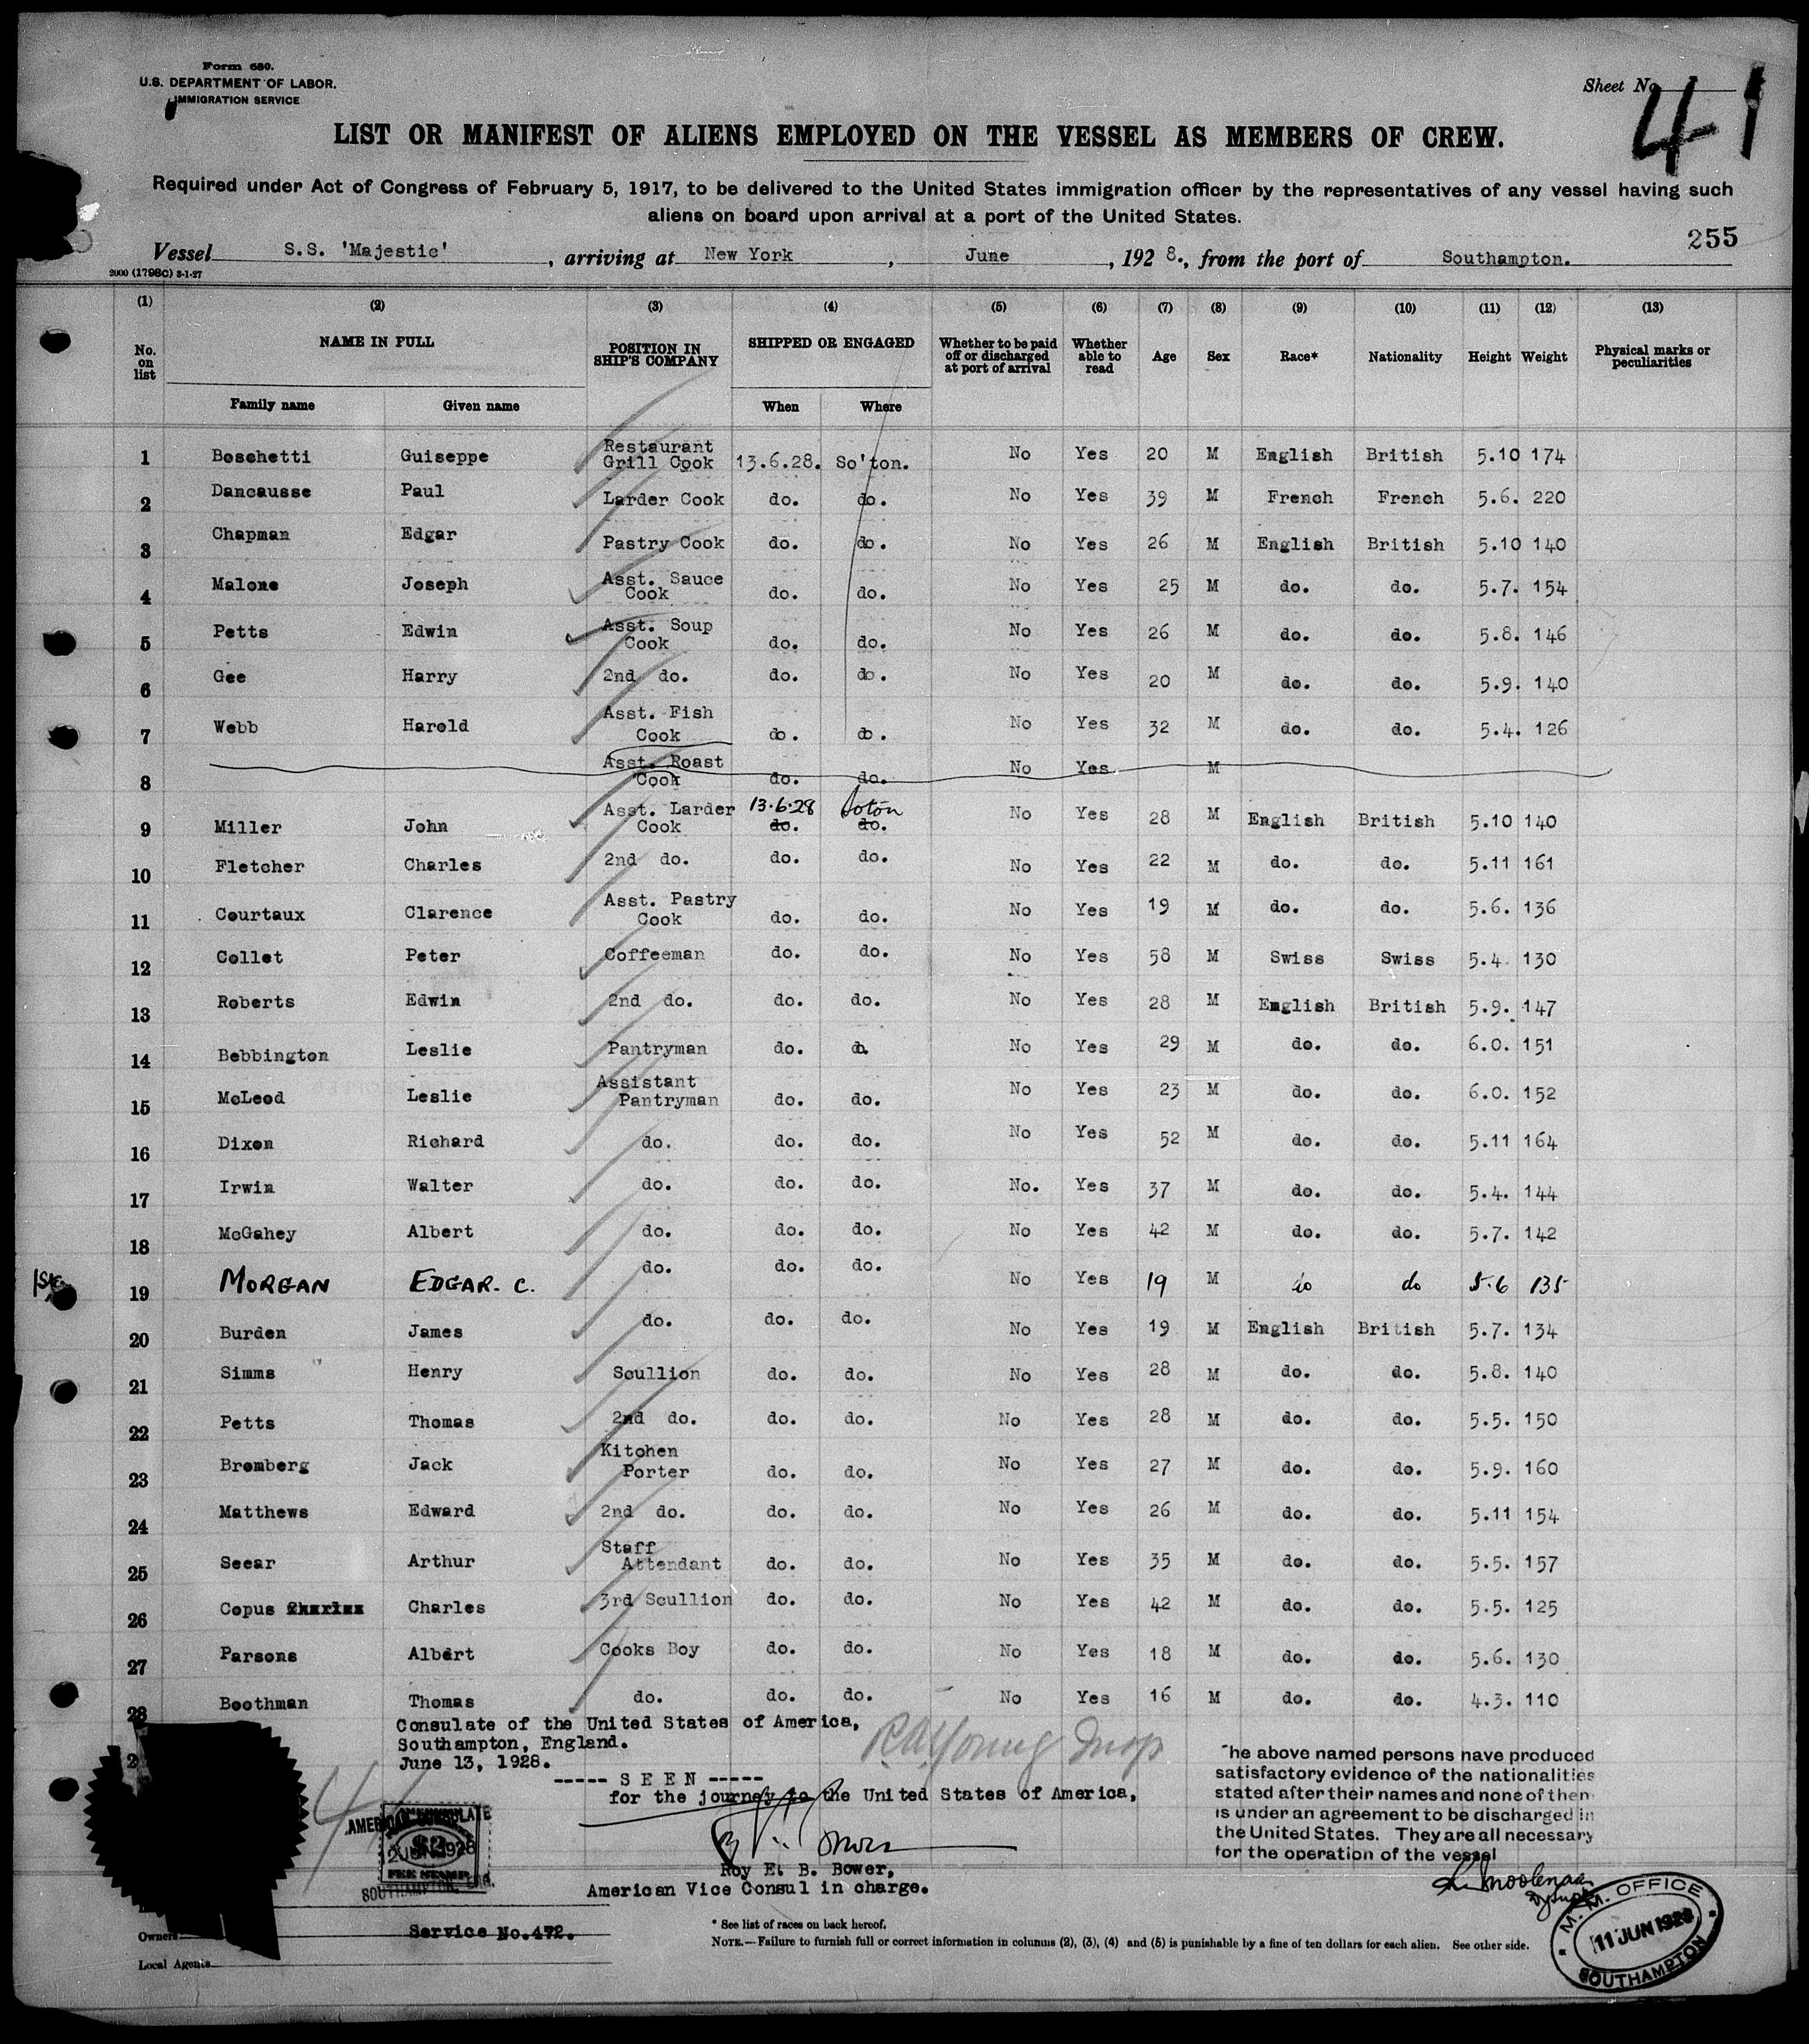 Form 680.
U.S. DEPARTMENT OF LABOR.
IMMIGRATION SERVICE
Sheet No. 41
LIST OR MANIFEST OF ALIENS EMPLOYED ON THE VESSEL AS MEMBERS OF CREW.
Required under Act of Congress of February 5, 1917, to be delivered to the United States immigration officer by the representatives of any vessel having such
aliens on board upon arrival at a port of the United States.
255
Vessel S.S. 'Majestic' , arriving at New York , June , 192 8., from the port of Southampton.
2000 (1798c) 3-1-27
(1) (2) (3) (4) (5) (6) (7) (8) (9) (10) (11) (12) (13)
No. on list NAME IN FULL POSITION IN SHIP'S COMPANY SHIPPED OR ENGAGED Whether to be paid off or discharged at port of arrival Whether able to read Age Sex Race* Nationality Height Weight Physical marks or peculiarities
Family name Given name When Where
1 Boschetti Guiseppe Restaurant Grill Cook 13.6.28. So'ton. No Yes 20 M English British 5.10 174
2 Dancausse Paul Larder Cook do. do. No Yes 39 M French French 5.6. 220
3 Chapman Edgar Pastry Cook do. do. No Yes 26 M English British 5.10 140
4 Malone Joseph Asst. Sauce Cook do. do. No Yes 25 M do. do. 5.7. 154
5 Petts Edwin Asst. Soup Cook do. do. No Yes 26 M do. do. 5.8. 146
6 Gee Harry 2nd do. do. do. No Yes 20 M do. do. 5.9. 140
7 Webb Harold Asst. Fish Cook do. do. No Yes 32 M do. do. 5.4. 126
8 Asst. Roast Cook do. do. No Yes M
9 Miller John Asst. Larder Cook 13.6.28 do. Soton do. No Yes 28 M English British 5.10 140
10 Fletcher Charles 2nd do. do. do. No Yes 22 M do. do. 5.11 161
11 Courtaux Clarence Asst. Pastry Cook do. do. No Yes 19 M do. do. 5.6. 136
12 Collet Peter Coffeeman do. do. No Yes 58 M Swiss Swiss 5.4. 130
13 Roberts Edwin 2nd do. do. do. No Yes 28 M English British 5.9. 147
14 Bebbington Leslie Pantryman do. do. No Yes 29 M do. do. 6.0. 151
15 McLeod Leslie Assistant Pantryman do. do. No Yes 23 M do. do. 6.0. 152
16 Dixon Richard do. do. do. No Yes 52 M do. do. 5.11 164
17 Irwin Walter do. do. do. No. Yes 37 M do. do. 5.4. 144
18 McGahey Albert do. do. do. No Yes 42 M do. do. 5.7. 142
19 MORGAN EDGAR. C. do. do. do. No Yes 19 M do do 5.6 135
20 Burden James do. do. do. No Yes 19 M English British 5.7. 134
21 Simms Henry Scullion do. do. No Yes 28 M do. do. 5.8. 140
22 Petts Thomas 2nd do. do. do. No Yes 28 M do. do. 5.5. 150
23 Bromberg Jack Kitchen Porter do. do. No Yes 27 M do. do. 5.9. 160
24 Matthews Edward 2nd do. do. do. No Yes 26 M do. do. 5.11 154
25 Seear Arthur Staff Attendant do. do. No Yes 35 M do. do. 5.5. 157
26 Copus Charles 3rd Scullion do. do. No Yes 42 M do. do. 5.5. 125
27 Parsons Albert Cooks Boy do. do. No Yes 18 M do. do. 5.6. 130
28 Boothman Thomas do. do. do. No Yes 16 M do. do. 4.3. 110
Consulate of the United States of America,
Southampton, England.
June 13, 1928.
----- S E E N -----
for the journey to the United States of America,
Roy E. B. Bower,
American Vice Consul in charge.
AMERICAN CONSULATE
$2
2 JUN 1928
FEE STAMP
SOUTHAMPTON, Eng.
The above named persons have produced
satisfactory evidence of the nationalities
stated after their names and none of them
is under an agreement to be discharged in
the United States. They are all necessary
for the operation of the vessel
M. M. OFFICE
11 JUN 1928
SOUTHAMPTON
Owners
Service No.472.
Local Agents
* See list of races on back hereof.
NOTE.—Failure to furnish full or correct information in columns (2), (3), (4) and (5) is punishable by a fine of ten dollars for each alien. See other side.